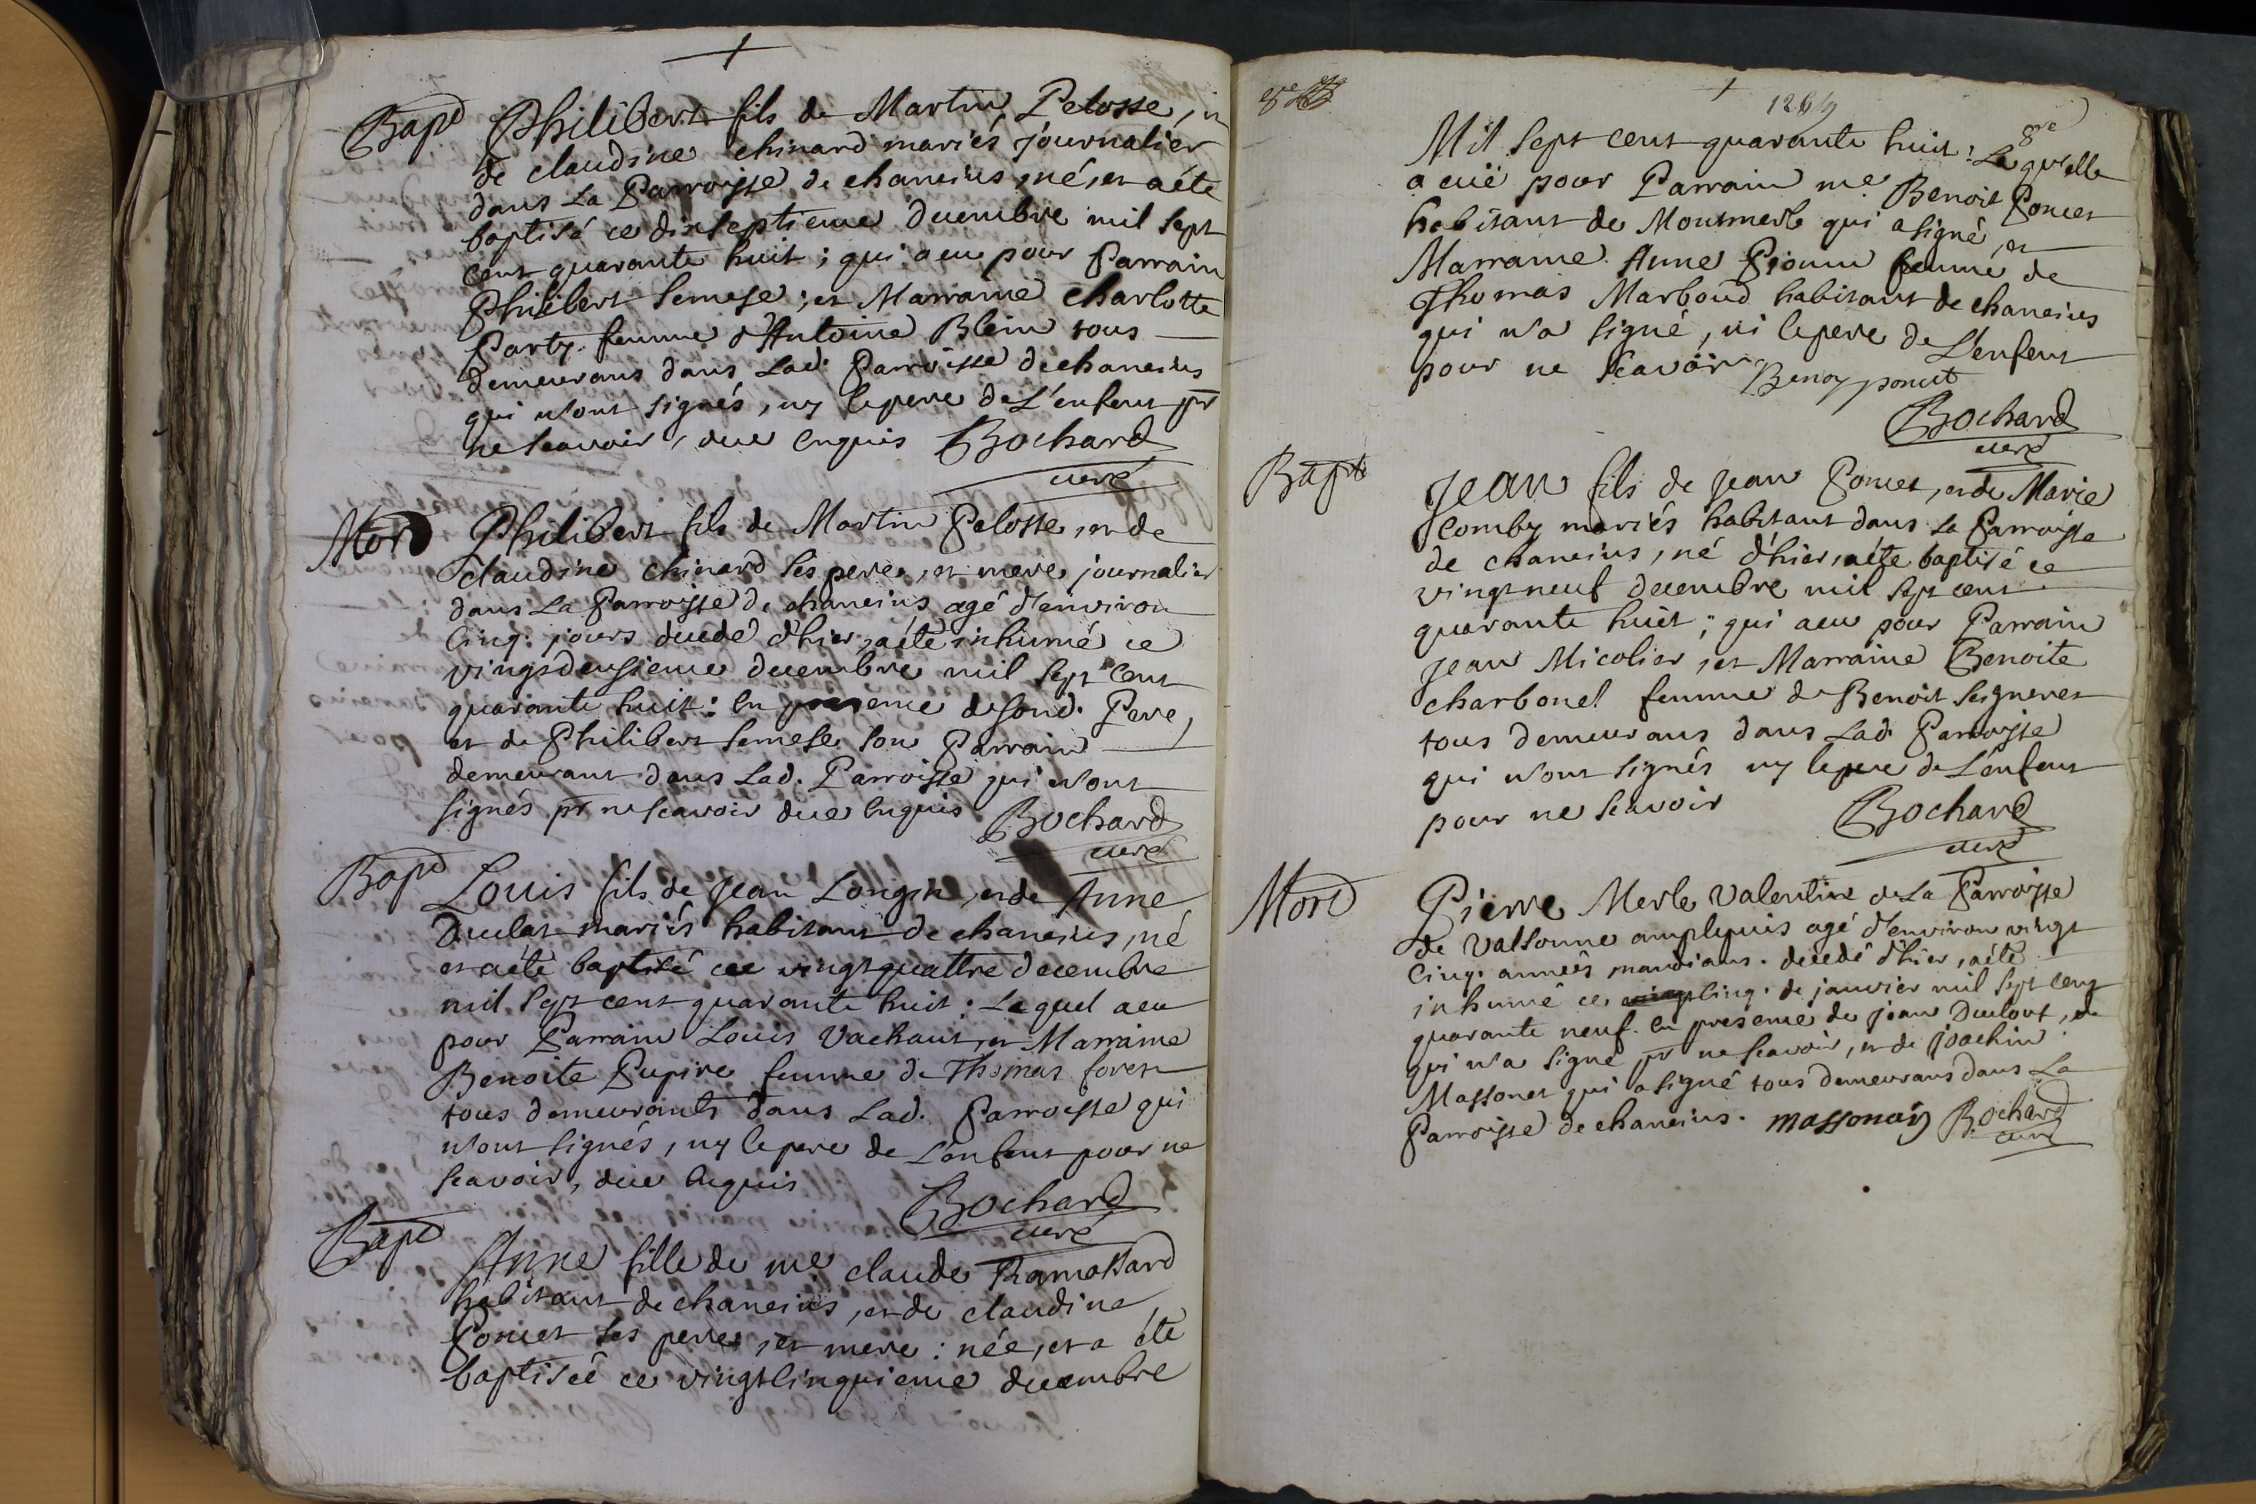 Bapt Philibert fils de Martin Pelosse, et
de claudine chinard mariés journalier
dans La Parroisse de chaneins, né, et aéte
baptisé ce dixseptieme decembre mil sept
cent quarante huit ; qui a eu pour Parrain
Philibert Semese ; et Marraine charlotte
Party femme d'Antoine Blein tous
demeurans dans Lad. Parroisse de chaneins
qui n'ont signés, ny le pere de L'enfent pr
ne scavoir, due enquis Bochard
curé
Mort Philibert fils de Martin Pelosse, et de
claudine chinard ses pere, et mere journalier
dans La Parroisse de chaneins agé d'environ
cinq. jours decedé d'hier, aéte inhumé ce
vingtdeusieme decembre mil sept cent
quarante huit : en presence de sond. Pere,
et de Philibert Semese son Parrain
demeurant dans Lad. Parroisse qui n'ont
signés pr ne scavoir due enquis Bochard
curé
Bapt Louis fils de Jean Longin, et de Anne
Duclat mariés habitant de chaneins, né
et aéte baptisé ce vingtquattre decembre
mil sept cent quarante huit : Lequel a eu
pour Parrain Louis Vachaut, et Marraine
Benoite Pupire femme de Thomas forest
tous demeurants dans Lad. Parroisse qui
n'ont signés, ny le pere de L'enfent pour ne
scavoir, due enquis
Bochard
curé
Bapt Anne fille de me claude Ramottard
habitant de chaneins, et de claudine
Poncet ses pere, et mere : née, et a éte
baptiseé ce vingtcinquieme decembre
1264
8re
Mil sept cent quarante huit : La quelle
a euë pour Parrain me Benoit Poncet
habitant de Montmerle qui a signé, et
Marraine Anne Pionin femme de
Thomas Marboud habitant de chaneins
qui n'a signé, ni le pere de L'enfent
pour ne scavoir
Benoy poncet
Bochard
curé
Bapt Jean fils de Jean Poncet, et de Marie
Comby mariés habitant dans La Parroisse
de chaneins, né d'hier, aéte baptisé ce
vingtneuf decembre mil sept cent
quarante huit ; qui a eu pour Parrain
Jean Micolier, et Marraine Benoite
charbonel femme de Benoit Seigneret
tous demeurans dans Lad. Parroisse
qui n'ont signés ny le pere de L'enfent
pour ne scavoir Bochard
curé
Mort Pierre Merle Valentin de La Parroisse
de Valsonne amplepuis agé d'environ vingt
cinq. annees mandiant. decedé d'hier, aéte
inhumé ce cinq. de janvier mil sept cent
quarante neuf. en presence de jean Duclout,
qui n'a signé pr ne scavoir, et de joachin
Massonet qui a signé tous demeurans dans La
Parroisse de chaneins. massonay Bochard
curé